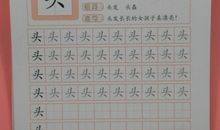 头
组词 头发 头盔
造句 头发长长的女孩子真漂亮!
头头头头头头头头头头
头头头头头头头头头头
头头头头头头头头头头
头头头头头头头头头头
头
头